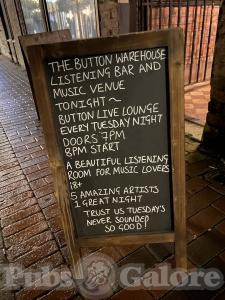 THE BUTTON WAREHOUSE
LISTENING BAR AND
MUSIC VENUE
TONIGHT ~
BUTTON LIVE LOUNGE
EVERY TUESDAY NIGHT
DOORS 7PM
8PM START
A BEAUTIFUL LISTENING
ROOM FOR MUSIC LOVERS
18+
5 AMAZING ARTISTS
1 GREAT NIGHT
TRUST US TUESDAY'S
NEVER SOUNDED
SO GOOD!
Pubs Galore